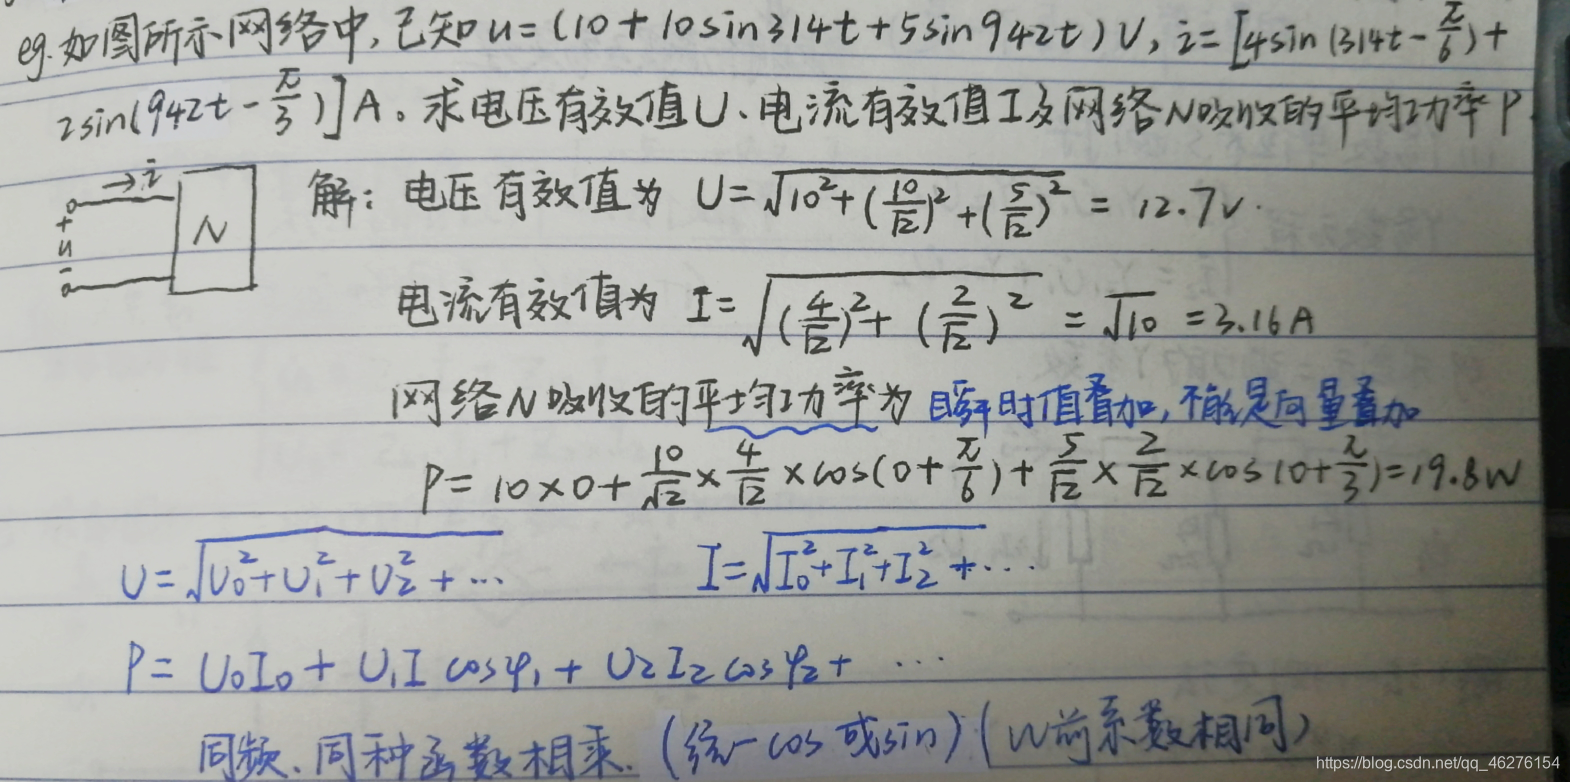 eg. 如图所示网络中,已知u=(10+10sin314t+5sin942t)V, i=[4sin(314t-π/6)+
2sin(942t-π/3)]A。求电压有效值U、电流有效值I及网络N吸收的平均功率P.
→i
+
u
-
N
解: 电压有效值为 U=√(10²+(10/√2)²+(5/√2)²) = 12.7V.
电流有效值为 I=√((4/√2)²+(2/√2)²) = √10 = 3.16A
网络N吸收的平均功率为 瞬时值叠加,不能是向量叠加
P= 10×0+10/√2×4/√2×cos(0+π/6)+5/√2×2/√2×cos(0+π/3)=19.8W
U=√(U₀²+U₁²+U₂²+…) I=√(I₀²+I₁²+I₂²+…)
P= U₀I₀+U₁I cosφ₁+U₂I₂cosφ₂+ …
同频、同种函数相乘. (统一cos或sin) (W前系数相同)
https://blog.csdn.net/qq_46276154